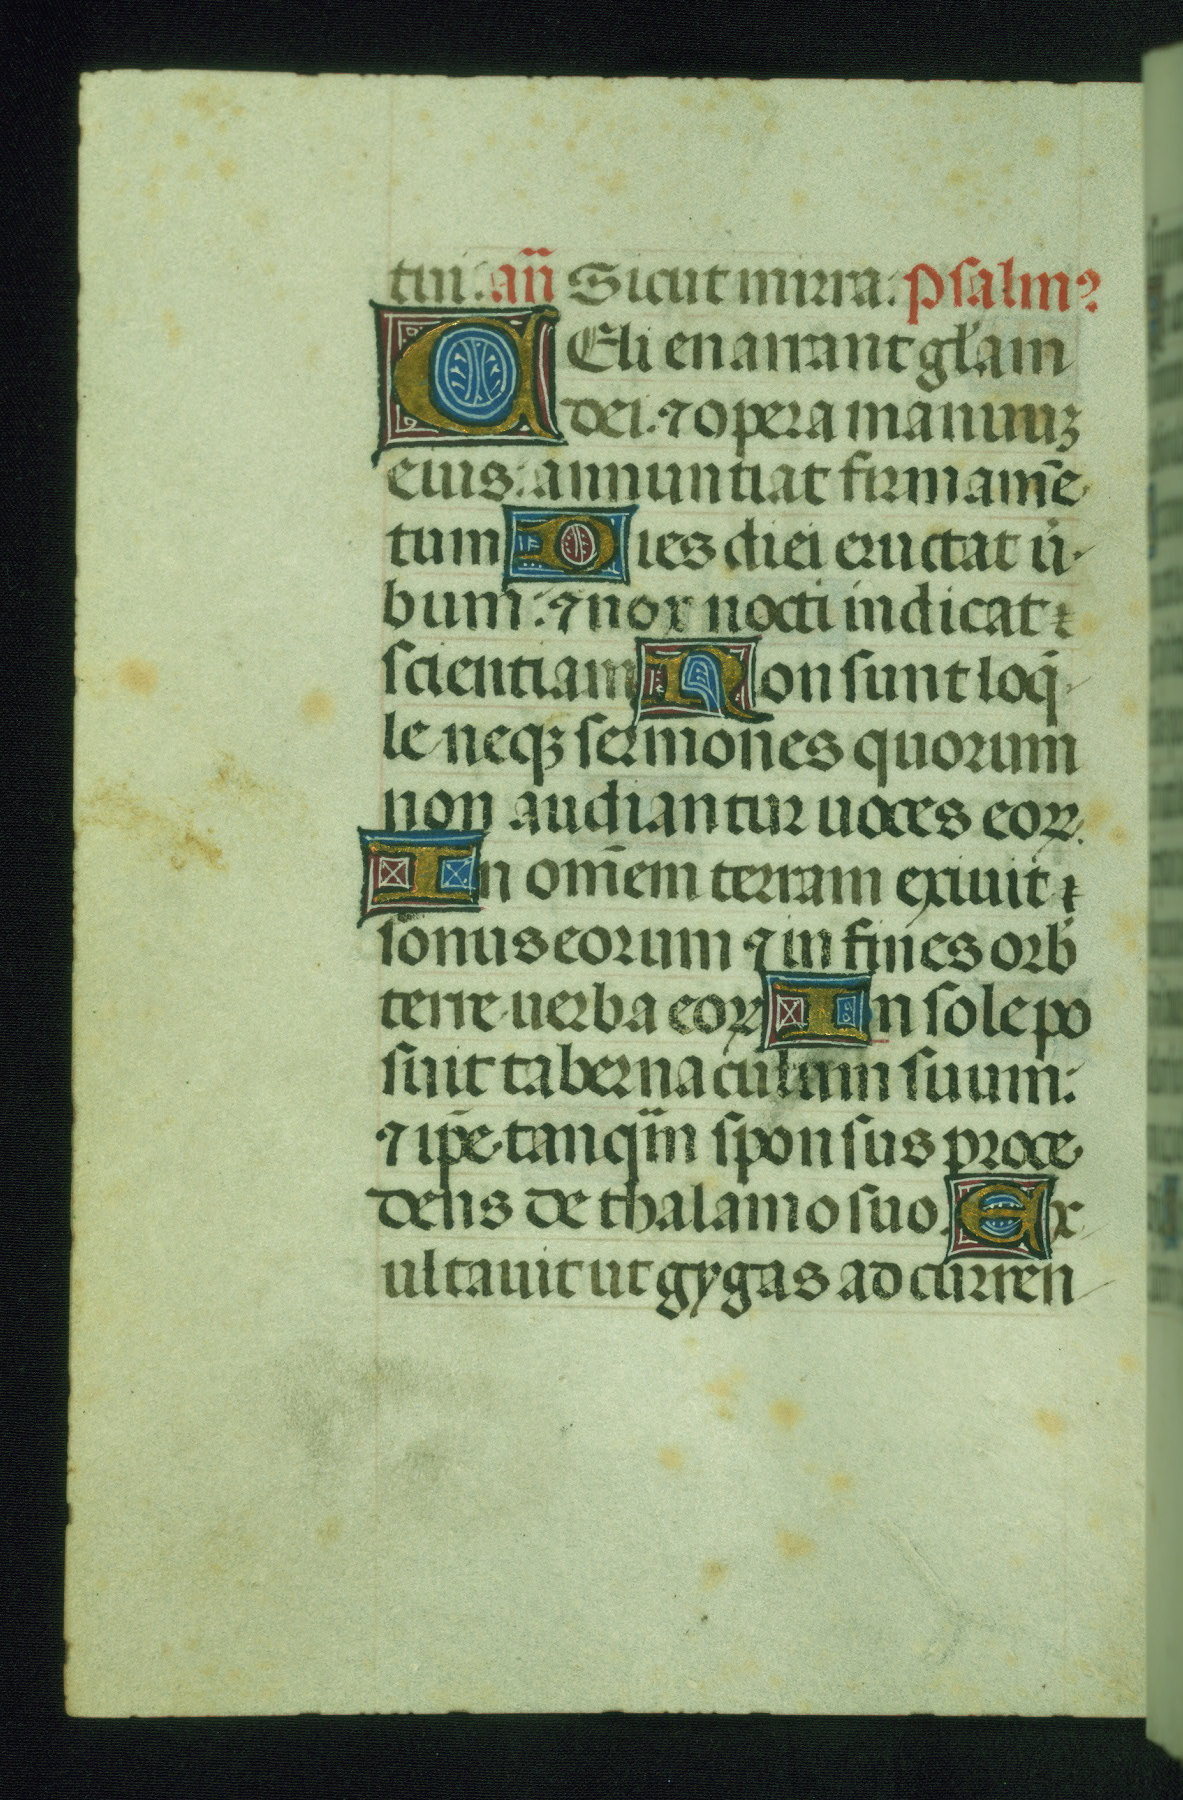 tui. añ Sicut mirra. Psalm⁹
Celi enarrant gl̃am
dei. ⁊ opera manuuꝫ
eius: annuntiat firmamẽ
tum Dies diei eructat u̇
bum: ⁊ nox nocti indicat
scientiam Non sunt loq̃
le neqꝫ sermones quorum
non audiantur uoces eoꝝ.
In om̃em terram exiuit
sonus eorum ⁊ in fines orb̾
terre uerba eoꝝ In sole po
suit tabernaculum suum:
⁊ ip̃e tanq̈m sponsus proce
dens de thalamo suo. Ex
ultauit ut gygas ad curren